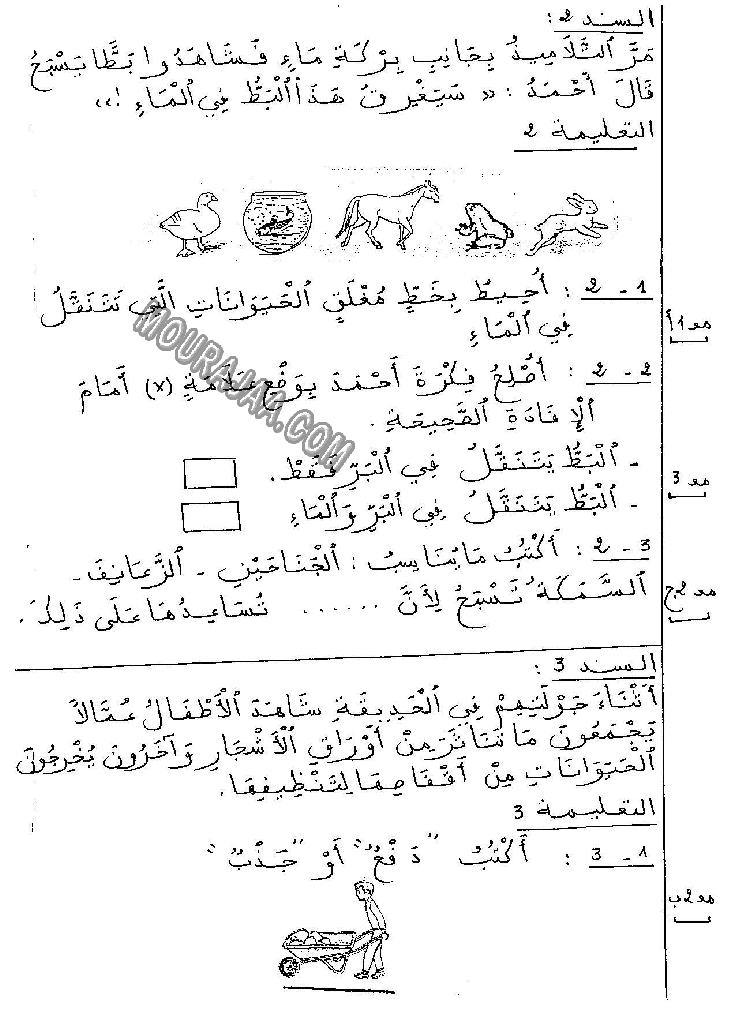 السند 2 :
مَرَّ التَّلَامِيذُ بِجَانِبِ بِرْكَةِ مَاءٍ فَشَاهَدُوا بَطًّا يَسْبَحُ
قَالَ أَحْمَدُ : « سَيَغْرَقُ هَذَا الْبَطُّ فِي الْمَاءِ ! »
التعليمة 2
2 - 1 : أُحِيطُ بِخَطٍّ مُغْلَقٍ الْحَيَوَانَاتِ الَّتِي تَتَنَقَّلُ
فِي الْمَاءِ
مع 1 أ
2 - 2 : أُصْلِحُ فِكْرَةَ أَحْمَدَ بِوَضْعِ عَلَامَةِ (x) أَمَامَ
الْإِفَادَةِ الصَّحِيحَةِ .
- الْبَطُّ يَتَنَقَّلُ فِي الْبَرِّ فَقَطْ .
- الْبَطُّ يَتَنَقَّلُ فِي الْبَرِّ وَالْمَاءِ
مع 3
2 - 3 : أَكْتُبُ مَا يُنَاسِبُ : الْجَنَاحَيْنِ - الزَّعَانِفَ -
السَّمَكَةُ تَسْبَحُ لِأَنَّ ...... تُسَاعِدُهَا عَلَى ذَلِكَ .
مع 2 ج
السند 3 :
أَثْنَاءَ جَوْلَتِهِمْ فِي الْحَدِيقَةِ شَاهَدَ الْأَطْفَالُ عُمَّالًا
يَجْمَعُونَ مَا تَنَاثَرَ مِنْ أَوْرَاقِ الْأَشْجَارِ وَآخَرُونَ يُخْرِجُونَ
الْحَيَوَانَاتِ مِنْ أَقْفَاصِهَا لِتَنْظِيفِهَا .
التعليمة 3
3 - 1 : أَكْتُبُ " دَفْعٌ " أَوْ " جَذْبٌ "
مع 2 ب
MOURAJAA.COM